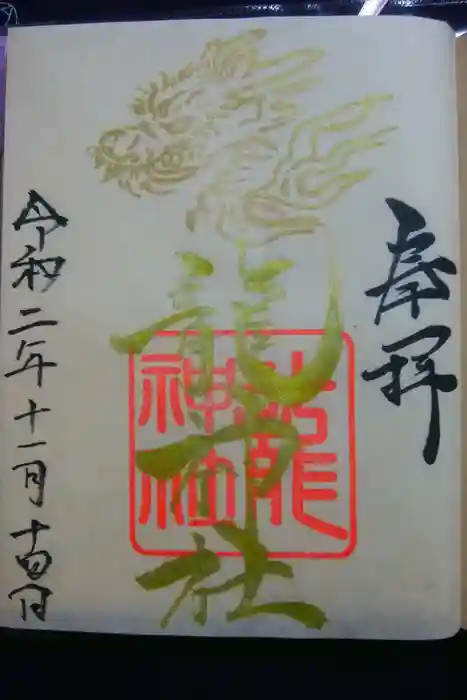 奉拝
龍神社
令和二年十一月十四日
龍
神社